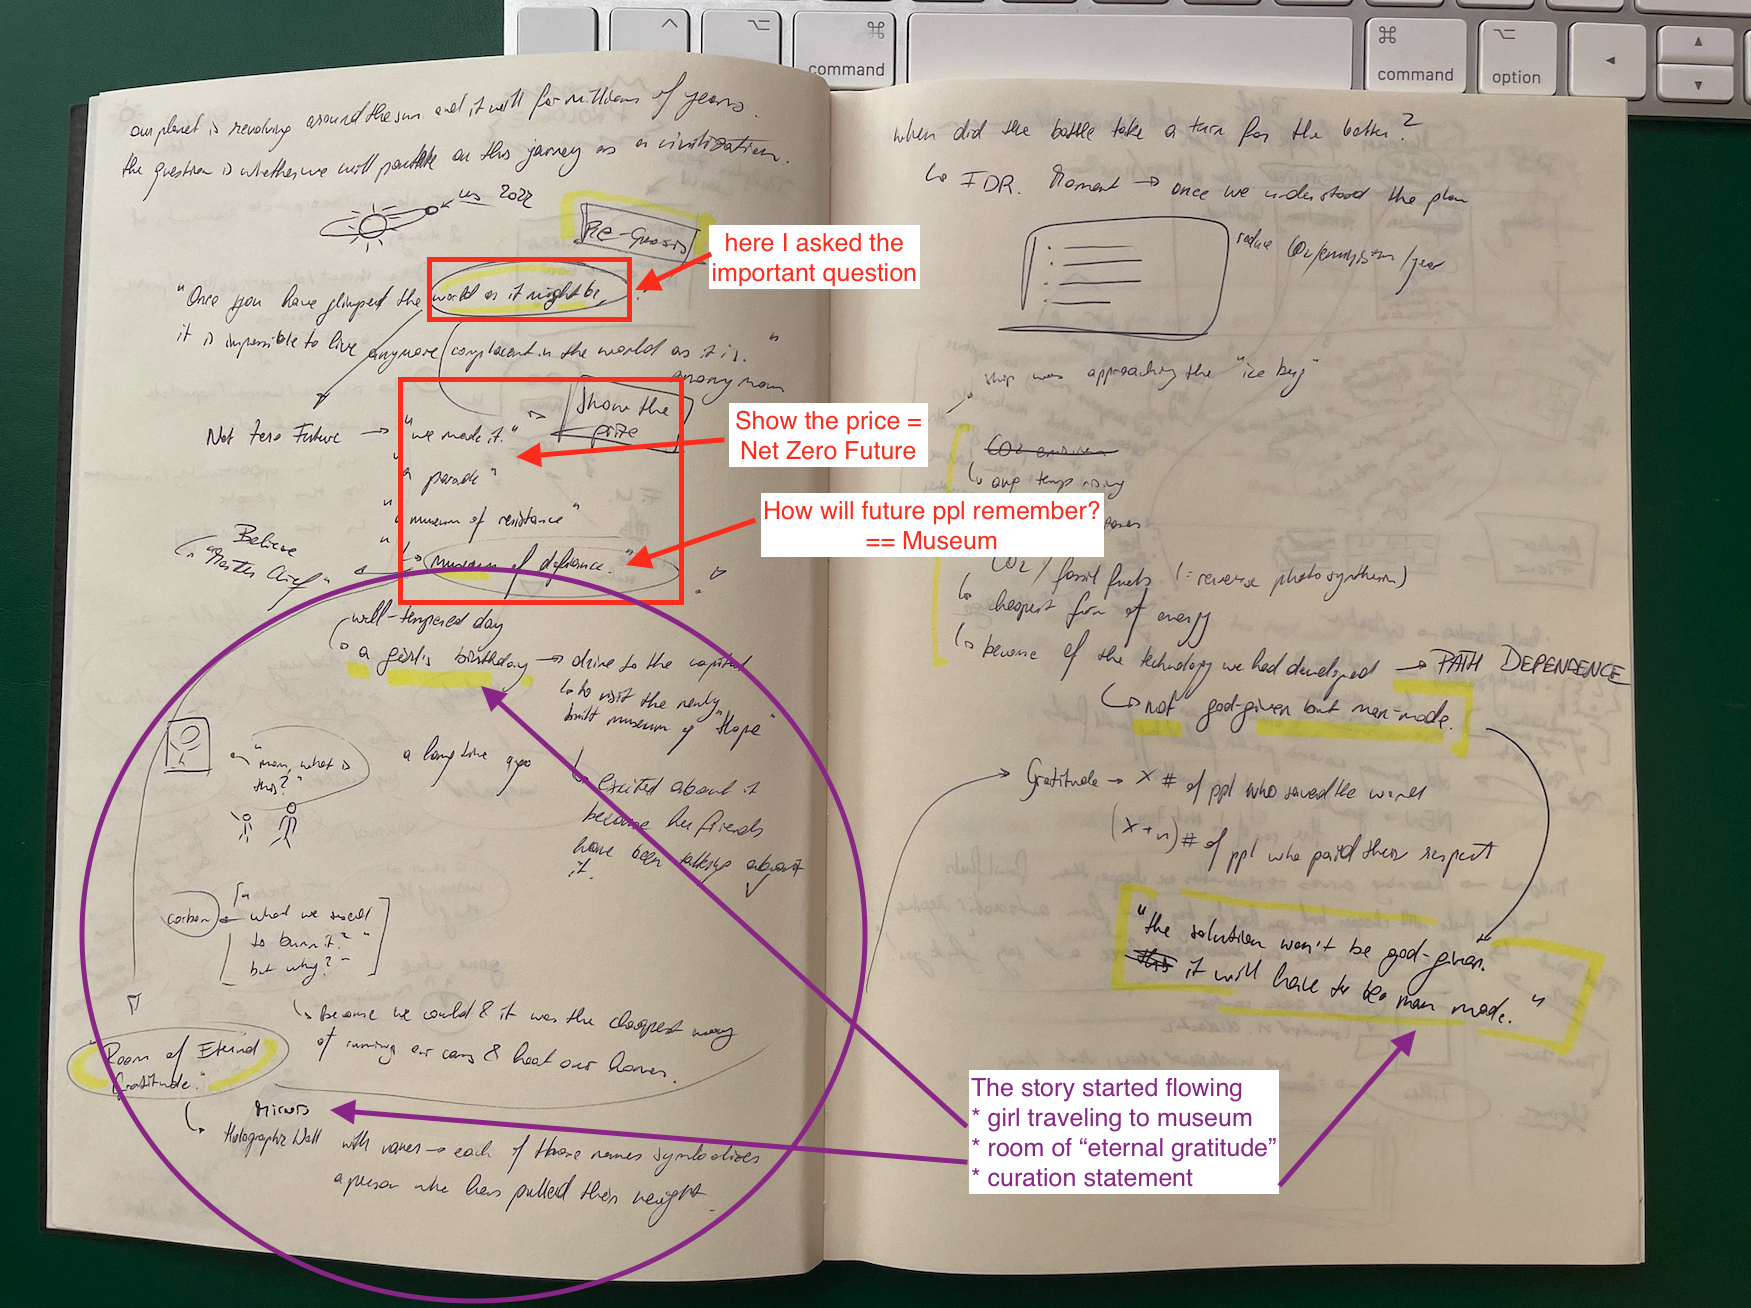 ^
⌥
⌘
command
⌘
command
⌥
option
◄
▲
▼
our planet is revolving around the sun and it will for millions of years.
the question is whether we will partake on this journey as a civilization.
us 2022
Re-Quests
here I asked the
important question
"Once you have glimpsed the world as it might be
it is impossible to live anymore complacent in the world as it is."
anonymous
Show the
prize
Show the price =
Net Zero Future
Net Zero Future → "we made it."
"a parade"
"museum of resistance"
"museum of defiance."
How will future ppl remember?
== Museum
Believe
"Master Chief"
well-tempered day
a girl's birthday → drive to the capital
to visit the newly
built museum of "Hope"
"mom, what is
this?"
a long time ago
excited about it
because her friends
have been talking about
it.
carbon
what we used
to burn it?"
but why?"
because we could & it was the cheapest way
of running our cars & heat our homes.
"Room of Eternal
Gratitude."
Mirrors
Holographic Wall with names → each of those names symbolizes
a person who has pulled their weight.
when did the battle take a turn for the better?
IDR. Moment → once we understood the plan
reduce CO2/emission/year
ship was approaching the "ice berg"
CO2 emission
avg temp rising
CO2 / fossil fuels (= reverse photosynthesis)
cheapest form of energy
because of the technology we had developed → PATH DEPENDENCE
not god-given but man-made.
Gratitude → X # of ppl who saved the world
(X+n) # of ppl who paid their respect
"the solution won't be god-given.
this it will have to be man made."
The story started flowing
* girl traveling to museum
* room of “eternal gratitude”
* curation statement